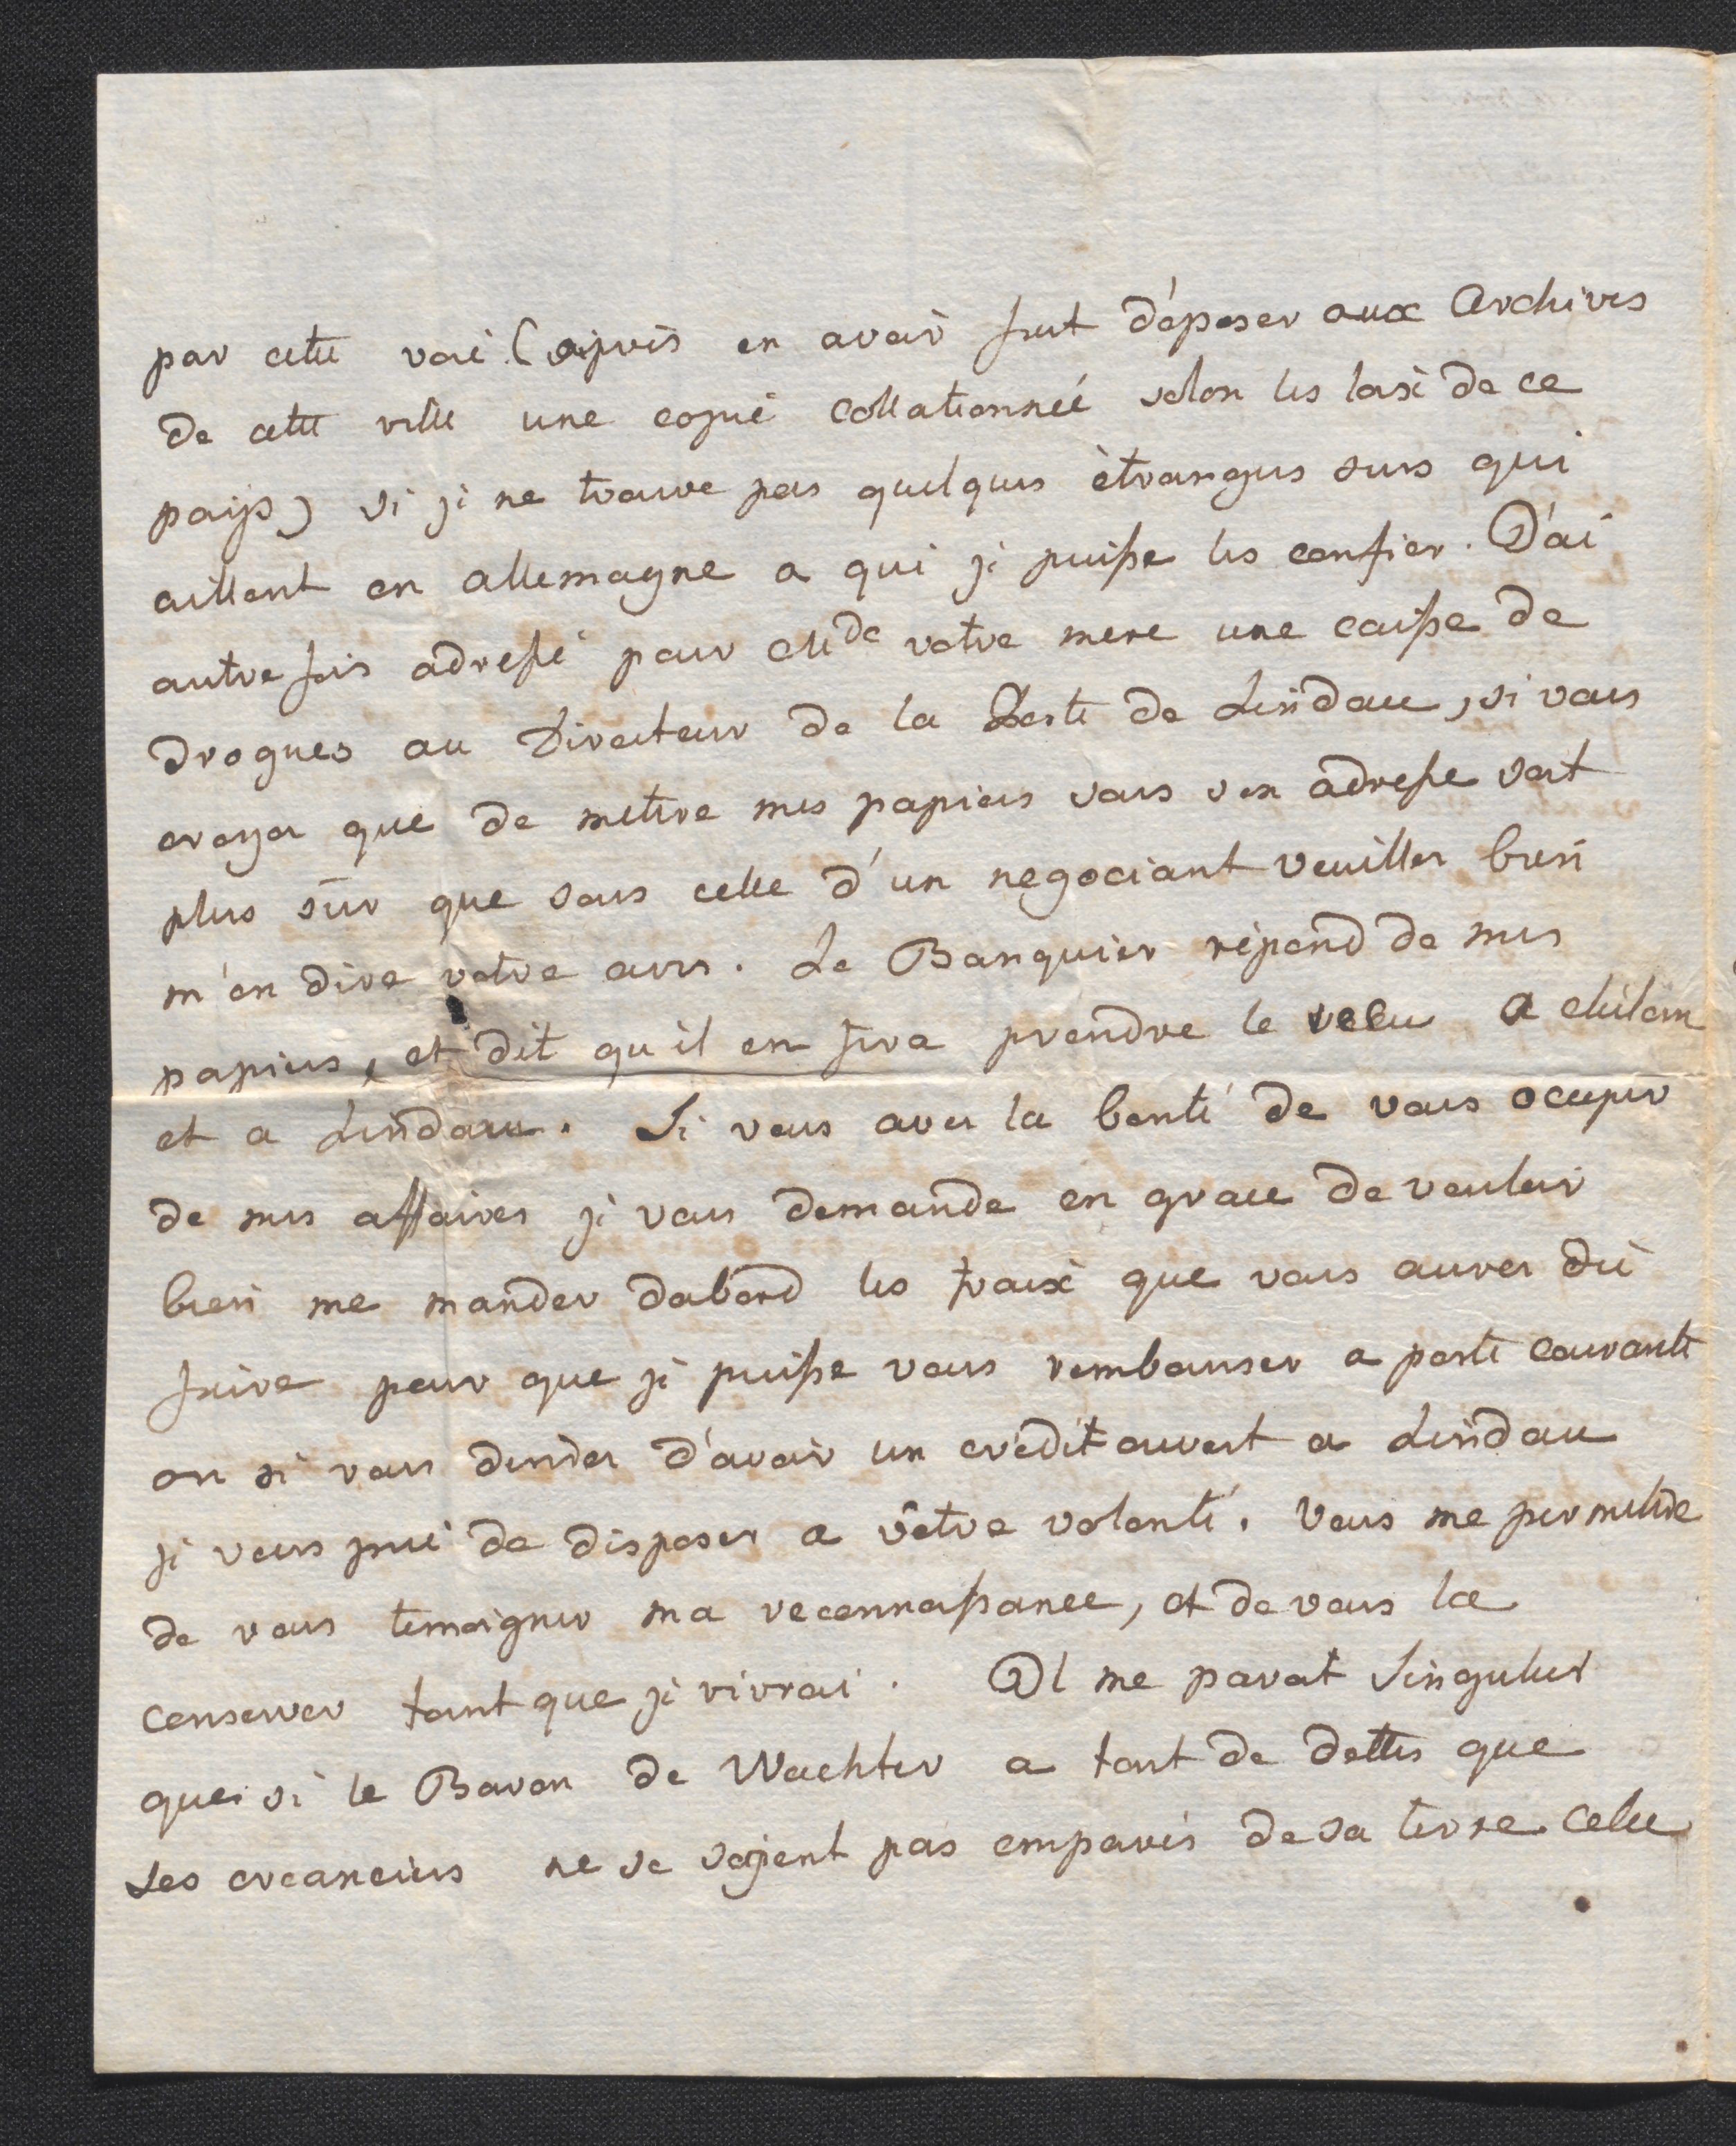 par cette voie (après en avoir fait déposer aux Archives
de cette ville une copie collationnée selon les loix de ce
pays) si je ne trouve pas quelques ètrangers surs qui
aillent en allemagne a qui je puisse les confier. J'ai
autre fois adressé pour Mde votre mere une caisse de
drogues au Directeur de la Poste de Lindau, si vous
croyez que de mettre mes papiers sous son adresse soit
plus sûr que sous celle d'un negociant veuillez bien
m'en dire votre avis. Le Banquier répond de mes
papiers, et dit qu'il en fera prendre le recu a Milan
et a Lindau. Si vous avez la bonté de vous occuper
de mes affaires je vous demande en grace de vouloir
bien me mander dabord les fraix que vous aurez dû
faire pour que je puisse vous rembourser a poste courante
ou si vous desirez d'avoir un crédit ouvert a Lindau
je vous prie de disposer a vôtre volonté. Vous me permettrez
de vous temoigner ma reconnaissance, et de vous la
conserver tant que je vivrai. Il me parat singulier
que si le Baron de Wachter a tant de dettes que
Les creanciers ne se soyent pas emparés de sa terre. Celle